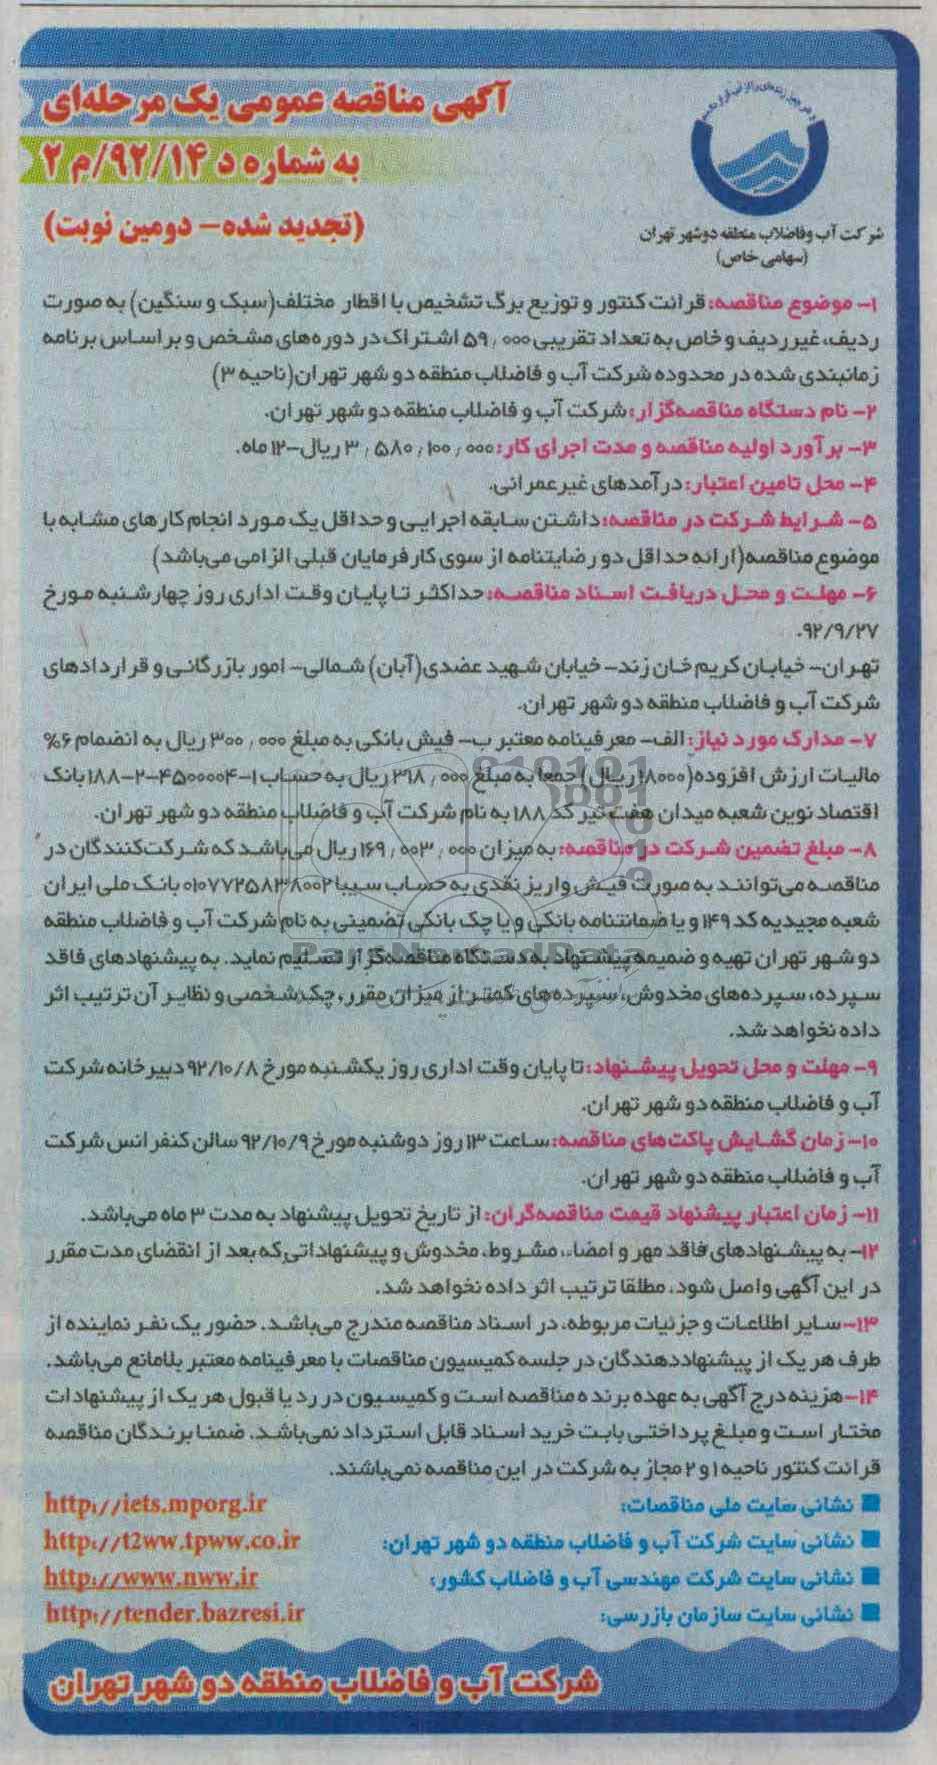 آگهی مناقصه عمومی یک مرحله‌ای
به شماره د ۹۲/۱۴/م ۲
(تجدید شده– دومین نوبت)
شرکت آب وفاضلاب منطقه دوشهر تهران
(سهامی خاص)
۱– موضوع مناقصه: قرائت کنتور و توزیع برگ تشخیص با اقطار مختلف(سبک و سنگین) به صورت
ردیف، غیرردیف و خاص به تعداد تقریبی ۵۹٫۰۰۰ اشتراک در دوره‌های مشخص و بر اساس برنامه
زمانبندی شده در محدوده شرکت آب و فاضلاب منطقه دو شهر تهران(ناحیه ۳)
۲– نام دستگاه مناقصه‌گزار: شرکت آب و فاضلاب منطقه دو شهر تهران.
۳– برآورد اولیه مناقصه و مدت اجرای کار: ۳٫۵۸۰٫۱۰۰٫۰۰۰ ریال–۱۲ ماه.
۴– محل تامین اعتبار: درآمدهای غیرعمرانی.
۵– شرایط شرکت در مناقصه: داشتن سابقه اجرایی و حداقل یک مورد انجام کارهای مشابه با
موضوع مناقصه(ارائه حداقل دو رضایتنامه از سوی کارفرمایان قبلی الزامی می‌باشد)
۶– مهلت و محل دریافت اسناد مناقصه: حداکثر تا پایان وقت اداری روز چهارشنبه مورخ
۹۲/۹/۲۷.
تهران– خیابان کریم خان زند– خیابان شهید عضدی(آبان) شمالی– امور بازرگانی و قراردادهای
شرکت آب و فاضلاب منطقه دو شهر تهران.
۷– مدارک مورد نیاز: الف– معرفینامه معتبر ب– فیش بانکی به مبلغ ۳۰۰٫۰۰۰ ریال به انضمام ۶%
مالیات ارزش افزوده(۱۸۰۰۰ ریال) جمعا به مبلغ ۳۱۸٫۰۰۰ ریال به حساب ۱–۴۵۰۰۰۰۴–۲–۱۸۸ بانک
اقتصاد نوین شعبه میدان هفت تیر کد ۱۸۸ به نام شرکت آب و فاضلاب منطقه دو شهر تهران.
۸– مبلغ تضمین شرکت در مناقصه: به میزان ۱۶۹٫۰۰۳٫۰۰۰ ریال می‌باشد که شرکت‌کنندگان در
مناقصه می‌توانند به صورت فیش واریز نقدی به حساب سیبا ۰۱۰۷۷۲۵۸۳۸۰۰۲ بانک ملی ایران
شعبه مجیدیه کد ۱۴۹ و یا ضمانتنامه بانکی و یا چک بانکی تضمینی به نام شرکت آب و فاضلاب منطقه
دو شهر تهران تهیه و ضمیمه پیشنهاد به دستگاه مناقصه‌گزار تسلیم نماید. به پیشنهادهای فاقد
سپرده، سپرده‌های مخدوش، سپرده‌های کمتر از میزان مقرر، چک شخصی و نظایر آن ترتیب اثر
داده نخواهد شد.
۹– مهلت و محل تحویل پیشنهاد: تا پایان وقت اداری روز یکشنبه مورخ ۹۲/۱۰/۸ دبیرخانه شرکت
آب و فاضلاب منطقه دو شهر تهران.
۱۰– زمان گشایش پاکت‌های مناقصه: ساعت ۱۳ روز دوشنبه مورخ ۹۲/۱۰/۹ سالن کنفرانس شرکت
آب و فاضلاب منطقه دو شهر تهران.
۱۱– زمان اعتبار پیشنهاد قیمت مناقصه‌گران: از تاریخ تحویل پیشنهاد به مدت ۳ ماه می‌باشد.
۱۲– به پیشنهادهای فاقد مهر و امضاء، مشروط، مخدوش و پیشنهاداتی که بعد از انقضای مدت مقرر
در این آگهی واصل شود، مطلقا ترتیب اثر داده نخواهد شد.
۱۳–سایر اطلاعات و جزئیات مربوطه، در اسناد مناقصه مندرج می‌باشد. حضور یک نفر نماینده از
طرف هر یک از پیشنهاددهندگان در جلسه کمیسیون مناقصات با معرفینامه معتبر بلامانع می‌باشد.
۱۴–هزینه درج آگهی به عهده برنده مناقصه است و کمیسیون در رد یا قبول هر یک از پیشنهادات
مختار است و مبلغ پرداختی بابت خرید اسناد قابل استرداد نمی‌باشد. ضمنا برندگان مناقصه
قرائت کنتور ناحیه ۱ و ۲ مجاز به شرکت در این مناقصه نمی‌باشند.
نشانی سایت ملی مناقصات: http://iets.mporg.ir
نشانی سایت شرکت آب و فاضلاب منطقه دو شهر تهران: http://t2ww.tpww.co.ir
نشانی سایت شرکت مهندسی آب و فاضلاب کشور: http://www.nww.ir
نشانی سایت سازمان بازرسی: http://tender.bazresi.ir
شرکت آب و فاضلاب منطقه دو شهر تهران
ParsNamadData